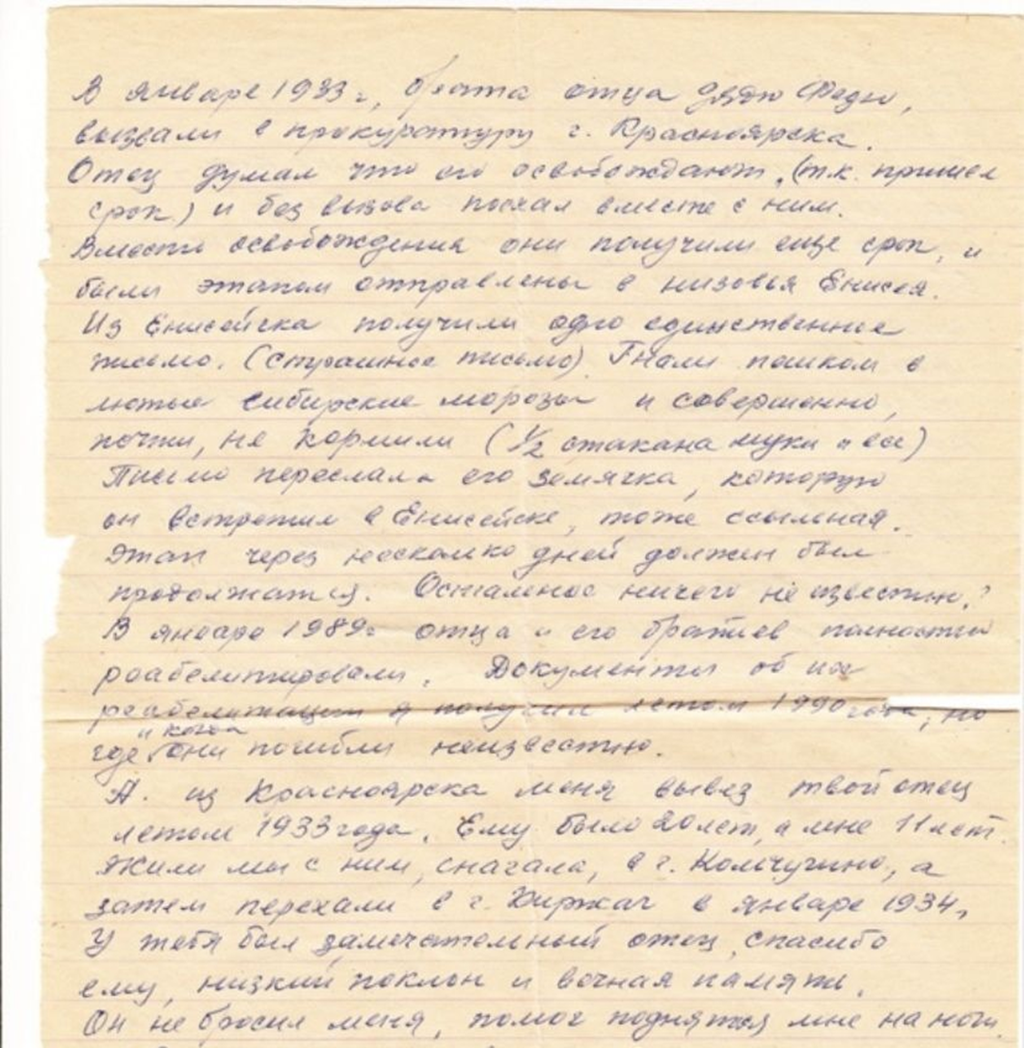 В январе 1933 г, брата отца дядю Федю,
вызвали в прокуратуру г. Красноярска.
Отец думал что его освобождают, (т.к. пришел
срок) и без вызова поехал вместе с ним.
Вместо освобождения они получили еще срок, и
были этапом отправлены в низовья Енисея.
Из Енисейска получили одно единственное
письмо. (Страшное письмо). Гнали пешком в
лютые сибирские морозы и совершенно,
почти, не кормили (1/2 стакана муки и все)
Письмо переслала его землячка, которую
он встретил в Енисейске, тоже ссыльная.
Этап через несколько дней должен был
продолжатся. Остальное ничего не известно.
В январе 1989г отца и его братьев полностью
реабелитировали. Документы об их
реабелитации я получил летом 1990 года, но
и когда
где они погибли неизвестно.
А. из Красноярска меня вывез твой отец
летом 1933 года. Ему было 20 лет, а мне 11 лет.
Жили мы с ним, сначала, в г. Кольчугино, а
затем переехали в г. Киржач в январе 1934,
У тебя был замечательный отец, спасибо
ему, низкий поклон и вечная память.
Он не бросил меня, помог поднятся мне на ноги.